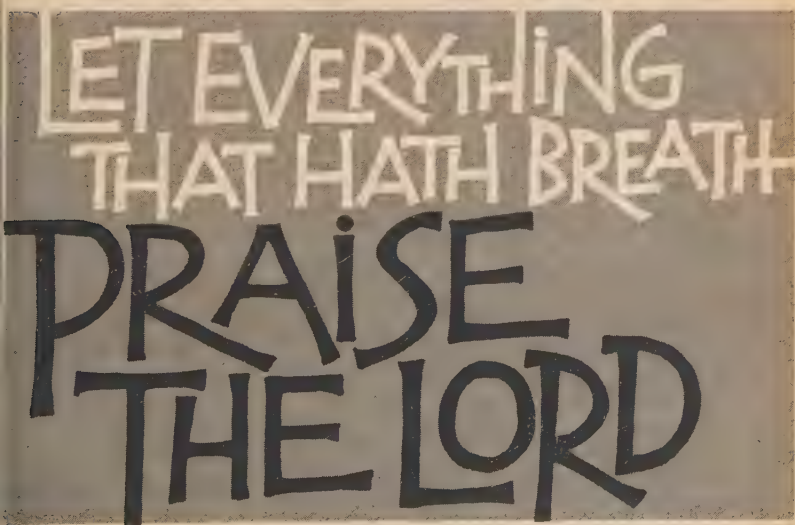 LET EVERYTHING
THAT HATH BREATH
PRAiSE
THE LORD